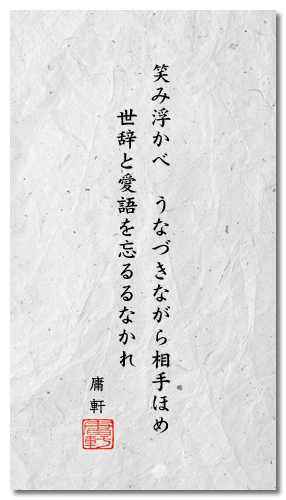 笑み浮かべ　うなづきながら相手ほめ
世辞と愛語を忘るるなかれ
庸軒
庸軒